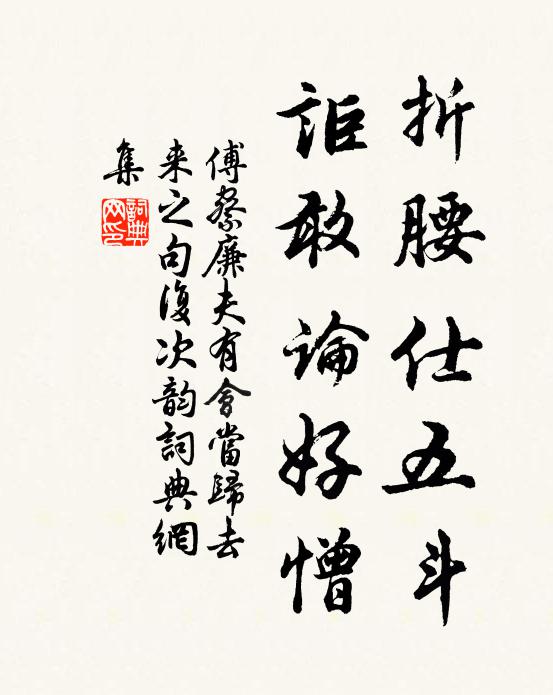 折腰仕五斗
詎敢論好憎
傅蔡廉夫有會當歸去
来之句復次韵詞典網
集
詞典網印